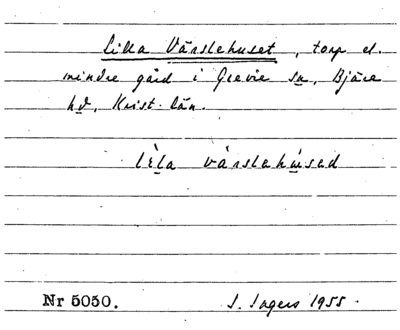 Lilla Värslehuset, torp el.
mindre gård i Grevie sn, Bjäre
hd, Krist. län.
lìla várslehúsad
Nr 5050. S. Ingers 1955.